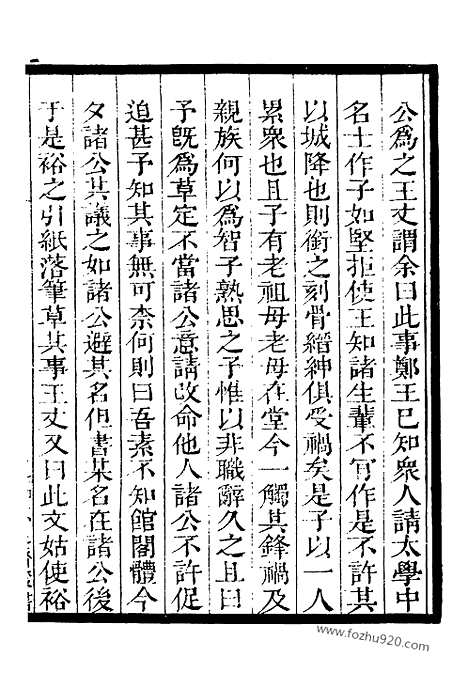 公為之王丈謂余曰此事鄭王已知衆人請太學中
名士作子如堅拒使王知諸生輩不肎作是不許其
以城降也則銜之刻骨縉紳俱受禍矣是子以一人
累衆也且子有老祖母老母在堂今一觸其鋒禍及
親族何以為智子熟思之予惟以非職辭久之且曰
予旣為草定不當諸公意請改命他人諸公不許促
迫甚予知其事無可柰何則曰吾素不知館閣體今
夕諸公共議之如諸公避其名但書某名在諸公後
于是裕之引紙落筆草其事王丈又曰此文姑使裕
www.fozhu920.com